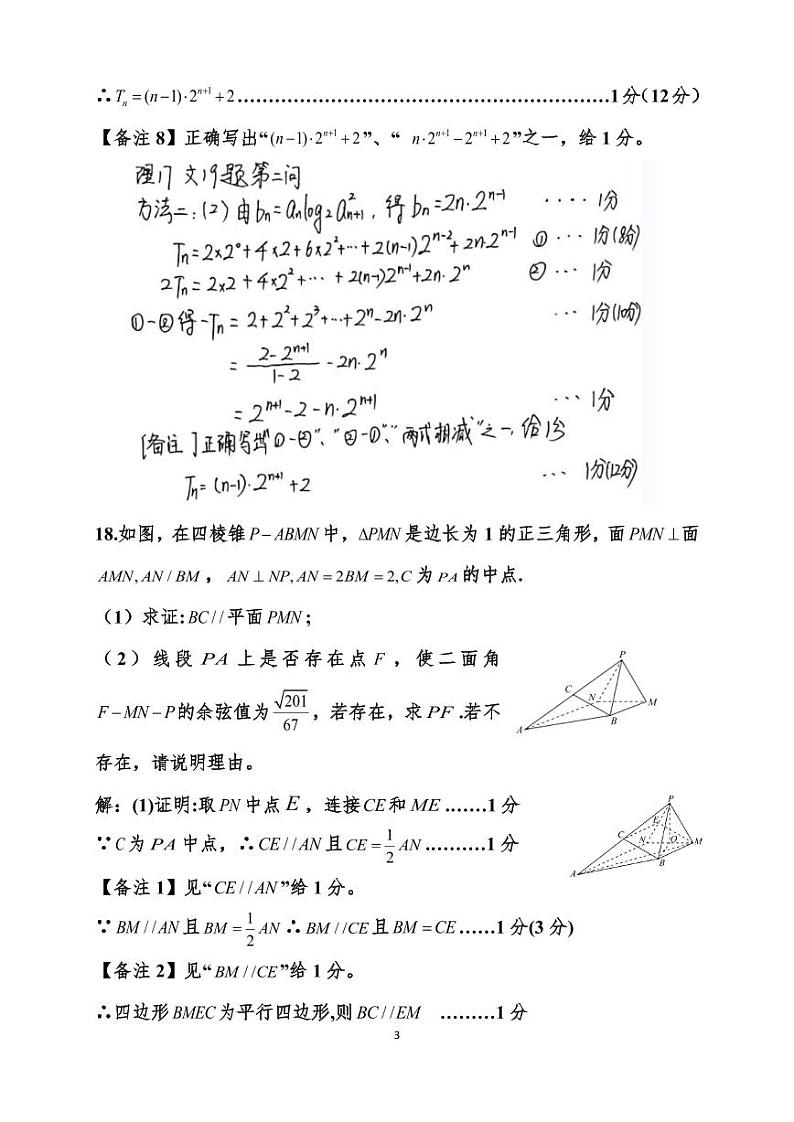 ∴ Tₙ = (n−1)·2ⁿ⁺¹ + 2……………………………………………………1分(12分)
【备注 8】正确写出“(n−1)·2ⁿ⁺¹ + 2”、“ n·2ⁿ⁺¹ − 2ⁿ⁺¹ + 2”之一，给 1 分。
理17 文19题第二问
方法二：(2) 由 bₙ = aₙlog₂a²ₙ₊₁，得 bₙ = 2n·2ⁿ⁻¹ ···· 1分
Tₙ = 2×2⁰ + 4×2 + 6×2² + ··· + 2(n−1)2ⁿ⁻² + 2n·2ⁿ⁻¹ ① ··· 1分(8分)
2Tₙ = 2×2 + 4×2² + ··· + 2(n−1)2ⁿ⁻¹ + 2n·2ⁿ ② ··· 1分
①−②得 −Tₙ = 2 + 2² + 2³ + ··· + 2ⁿ − 2n·2ⁿ ··· 1分(10分)
= (2−2ⁿ⁺¹)/(1−2) − 2n·2ⁿ
= 2ⁿ⁺¹ − 2 − n·2ⁿ⁺¹ ··· 1分
[备注]正确写出“①−②”、“②−①”“两式相减”之一，给1分
Tₙ = (n−1)·2ⁿ⁺¹ + 2 ··· 1分(12分)
18.如图，在四棱锥 P−ABMN 中，ΔPMN 是边长为 1 的正三角形，面 PMN ⊥ 面
AMN, AN / BM ， AN ⊥ NP, AN = 2BM = 2, C 为 PA 的中点.
（1）求证: BC // 平面 PMN；
（2）线段 PA 上是否存在点 F ，使二面角
F−MN−P 的余弦值为 √201/67 ，若存在，求 PF .若不
存在，请说明理由。
P
C
N
M
A
B
解：(1)证明:取 PN 中点 E ，连接 CE 和 ME …….1 分
∵ C 为 PA 中点，∴ CE // AN 且 CE = 1/2 AN ……….1 分
【备注 1】见“ CE // AN ”给 1 分。
P
E
C
N
O
M
A
B
∵ BM // AN 且 BM = 1/2 AN ∴ BM // CE 且 BM = CE ……1 分(3 分)
【备注 2】见“ BM // CE ”给 1 分。
∴四边形 BMEC 为平行四边形,则 BC // EM ………1 分
3